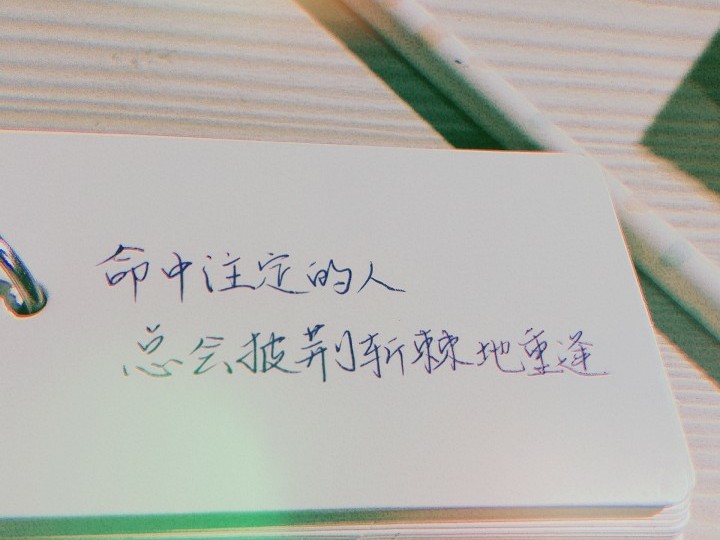 命中注定的人
总会披荆斩棘地重逢